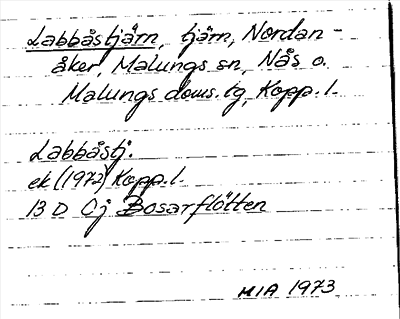 Labbåstjärn, tjärn, Nordan-
åker, Malungs sn, Nås o.
Malungs doms.tg, Kopp. l.
Labbåstj.
ek (1972) Kopp. l.
13 D 0j Bosarflötten
MIA 1973